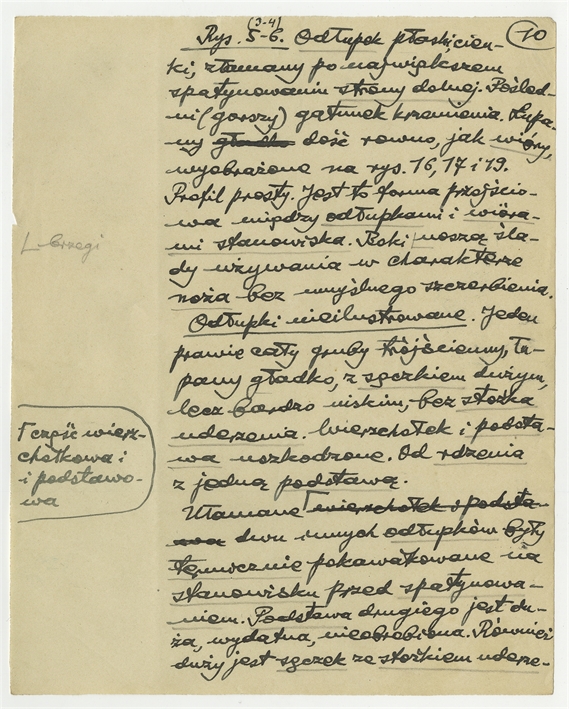 (3-4) 10
Rys. 5-6. Odłupek płaski, cien-
ki, złamany po największem
spatynowaniu strony dolnej. Pośled-
ni (gorszy) gatunek krzemienia. Łupa-
ny gładko dość równo, jak wióry,
wyobrażone na rys. 16, 17 i 19.
Profil prosty. Jest to forma przejścio-
wa między odłupkami i wióra-
mi stanowiska. Boki noszą śla-
L brzegi
dy używania w charakterze
noża bez umyślnego szczerbienia.
Odłupki nieilustrowane. Jeden
prawie cały gruby trójścienny, łu-
pany gładko, z sęczkiem dużym,
lecz bardzo niskim, bez stożka
uderzenia. Wierzchołek i podsta-
wa uszkodzone. Od rdzenia
z jedną podstawą.
Γ część wierz-
chołkowa i
i podstawo-
wa
Ułamane Γ wierzchołek i podsta-
wa dwu innych odłupków były
termicznie pokawałkowane na
stanowisku przed spatynowa-
niem. Podstawa drugiego jest du-
ża, wydatna, nieobrobiona. Również
duży jest sęczek ze stożkiem uderze-